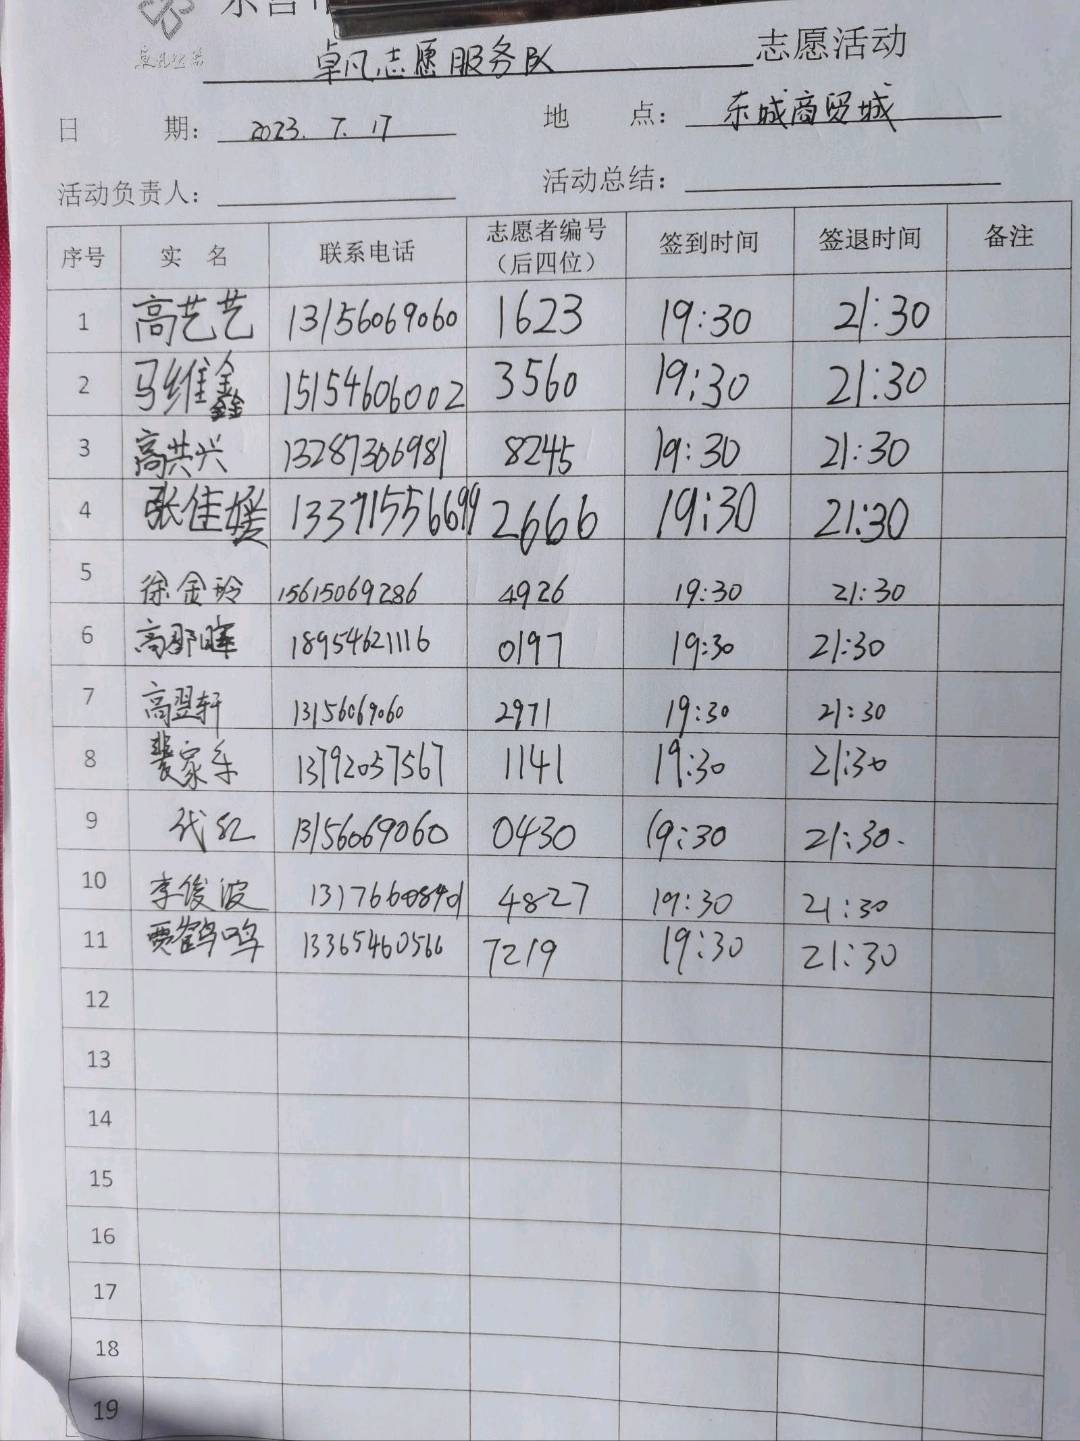 卓凡志愿服务队 志愿活动
日 期： 2023.7.17 地 点： 东城商贸城
活动负责人： 活动总结：
序号 实 名 联系电话 志愿者编号（后四位） 签到时间 签退时间 备注
1 高艺艺 13156069060 1623 19:30 21:30
2 马维鑫 15154606002 3560 19:30 21:30
3 高洪兴 13287306981 8245 19:30 21:30
4 张佳媛 13371556699 2666 19:30 21:30
5 徐金玲 15615069286 4926 19:30 21:30
6 18954621116 0197 19:30 21:30
7 高翌轩 13156069060 2971 19:30 21:30
8 裴家乐 13792057567 1141 19:30 21:30
9 代红 13156069060 0430 19:30 21:30.
10 李俊波 4827 19:30 21:30
11 贾鹤鸣 13365460566 7219 19:30 21:30
12
13
14
15
16
17
18
19